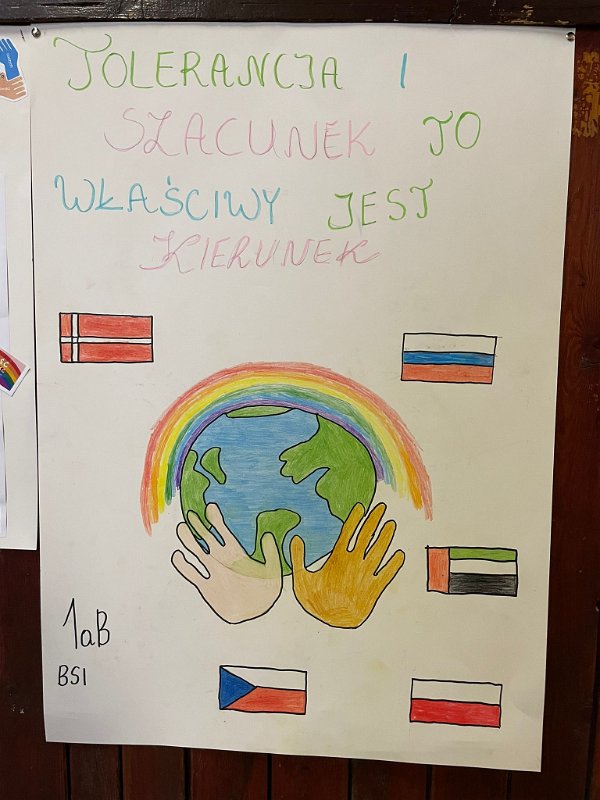 TOLERANCJA I
SZACUNEK TO
WŁAŚCIWY JEST
KIERUNEK
1aB
BSI